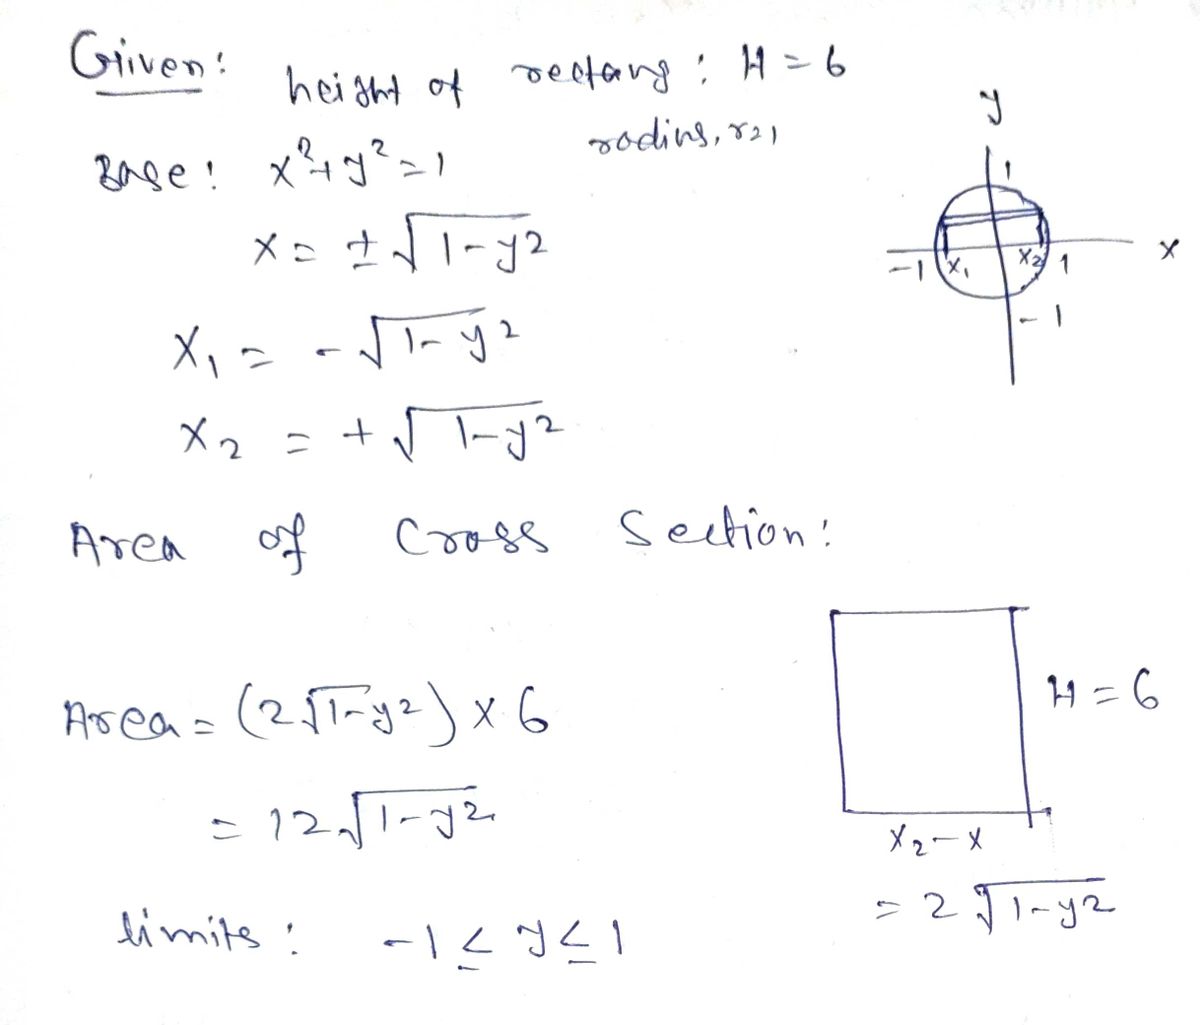 Given:
height of rectang : H = 6
radius, r=1
Base: x²+y² = 1
x = ±√1-y²
x₁ = -√1-y²
x₂ = +√1-y²
y
1
-1 x₁ x₂ 1 x
-1
Area of Cross Section:
Area = (2√1-y²) x 6
= 12√1-y²
H = 6
x₂-x
= 2√1-y²
limits: -1 ≤ y ≤ 1